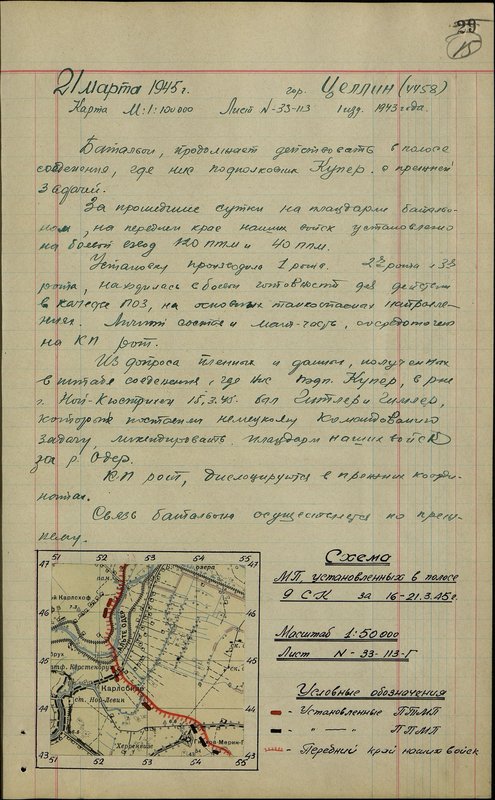 29
15
21 марта 1945 г. гор. Целлин (4458)
Карта М: 1:100000 Лист N-33-113 1 изд. 1943 года.
Батальон, продолжает действовать в полосе
соединения, где нис подполковник Купер. с прежней
задачей.
За прошедшие сутки на плацдарме батальо-
ном, на переднем крае наших войск установлено
на боевой взвод 120 птм и 40 ппм.
Установку производила 1 рота. 2я рота и 3я
рота, находилась в боевой готовности для действий
в качестве ПОЗ, на основных танкоопасных направле-
ниях. Личный состав и мат-часть, сосредоточено
на КП рот.
Из допроса пленных и данных, полученных
в штабе соединения, где нис подп. Купер, в р-не
г. Ной-Кюстринен 15.3.45. был Гитлер и Гимлер,
которые поставили немецкому командованию
задачу, ликвидировать плацдарм наших войск
за р. Одер.
КП рот, дислоцируются в прежних коорди-
натах.
Связь батальона осуществляется по преж-
нему.
51 52 52 53 54 55
47 47
46 46
45 45
44 44
43 43
51 52 53 54 55
Карлсхоф
АЛЬТЕ ОДЕР
Керстенбрух
Карлсбизе
ст. Ной-Левин
Херренвизе
Схема
МП, установленных в полосе
9 С К за 16-21.3.45 г.
Масштаб 1:50000
Лист N-33-113-Г
Условные обозначения
- Установленные ПТМП
- " — " ППМП
- Передний край наших войск